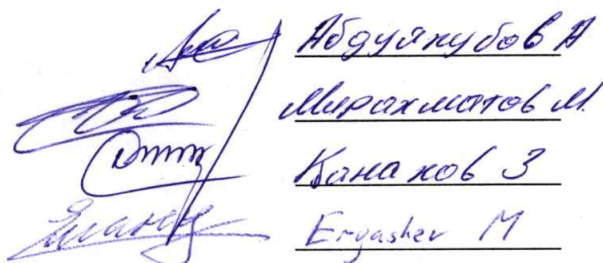 Абдуякубов А
Мирахматов М.
Канаков З
Ergashev M